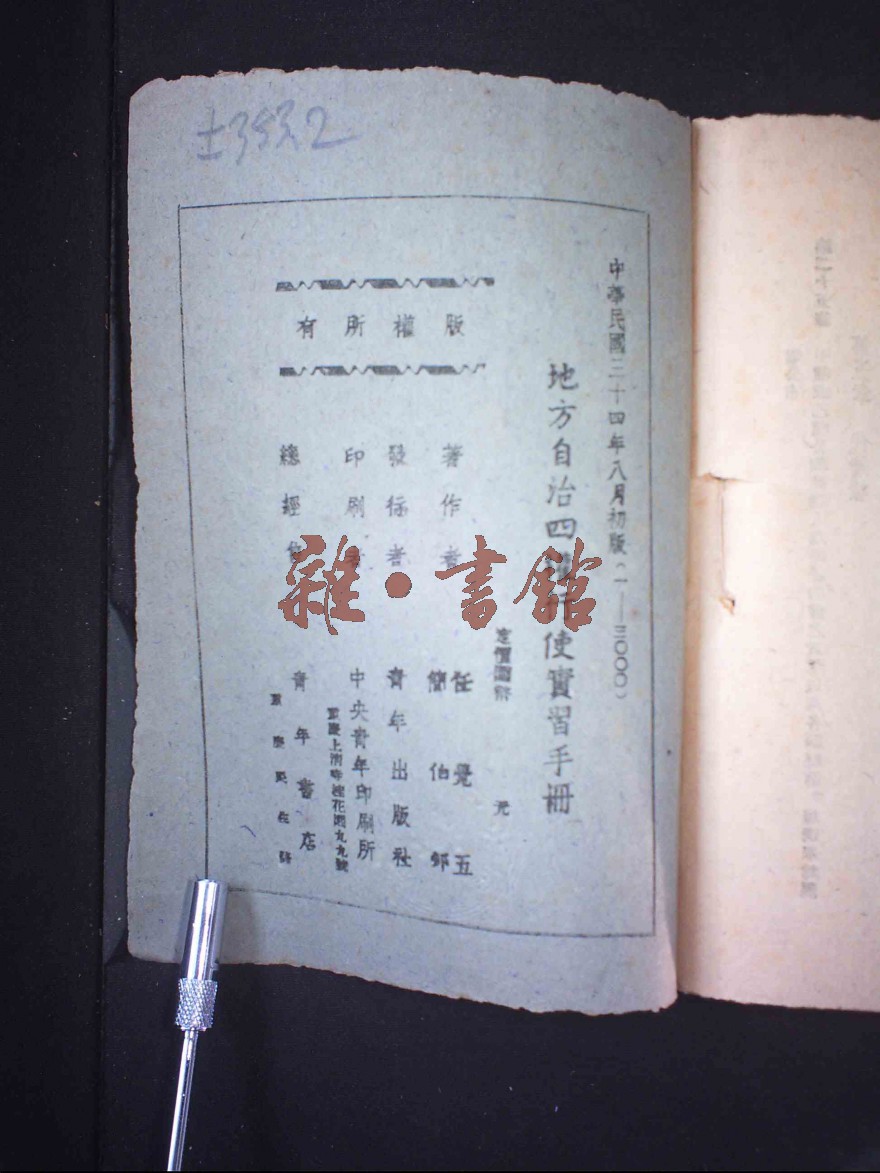 ±3532
中華民國三十四年八月初版(一—三〇〇〇)
地方自治四權行使實習手冊
定價國幣 元
著作者 任覺五
簡伯邨
發行者 青年出版社
印刷者 中央青年印刷所
重慶上清寺桂花園九九號
總經售 青年書店
重慶民生路
版權所有
雜·書館